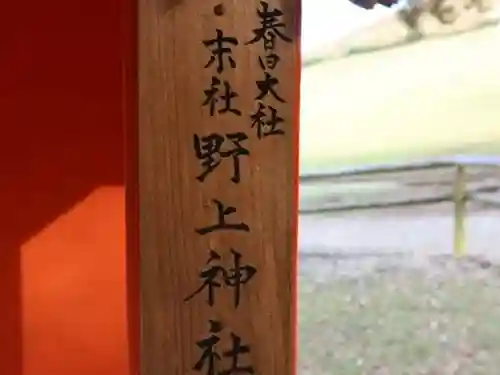 春日大社
・末社
野上神社